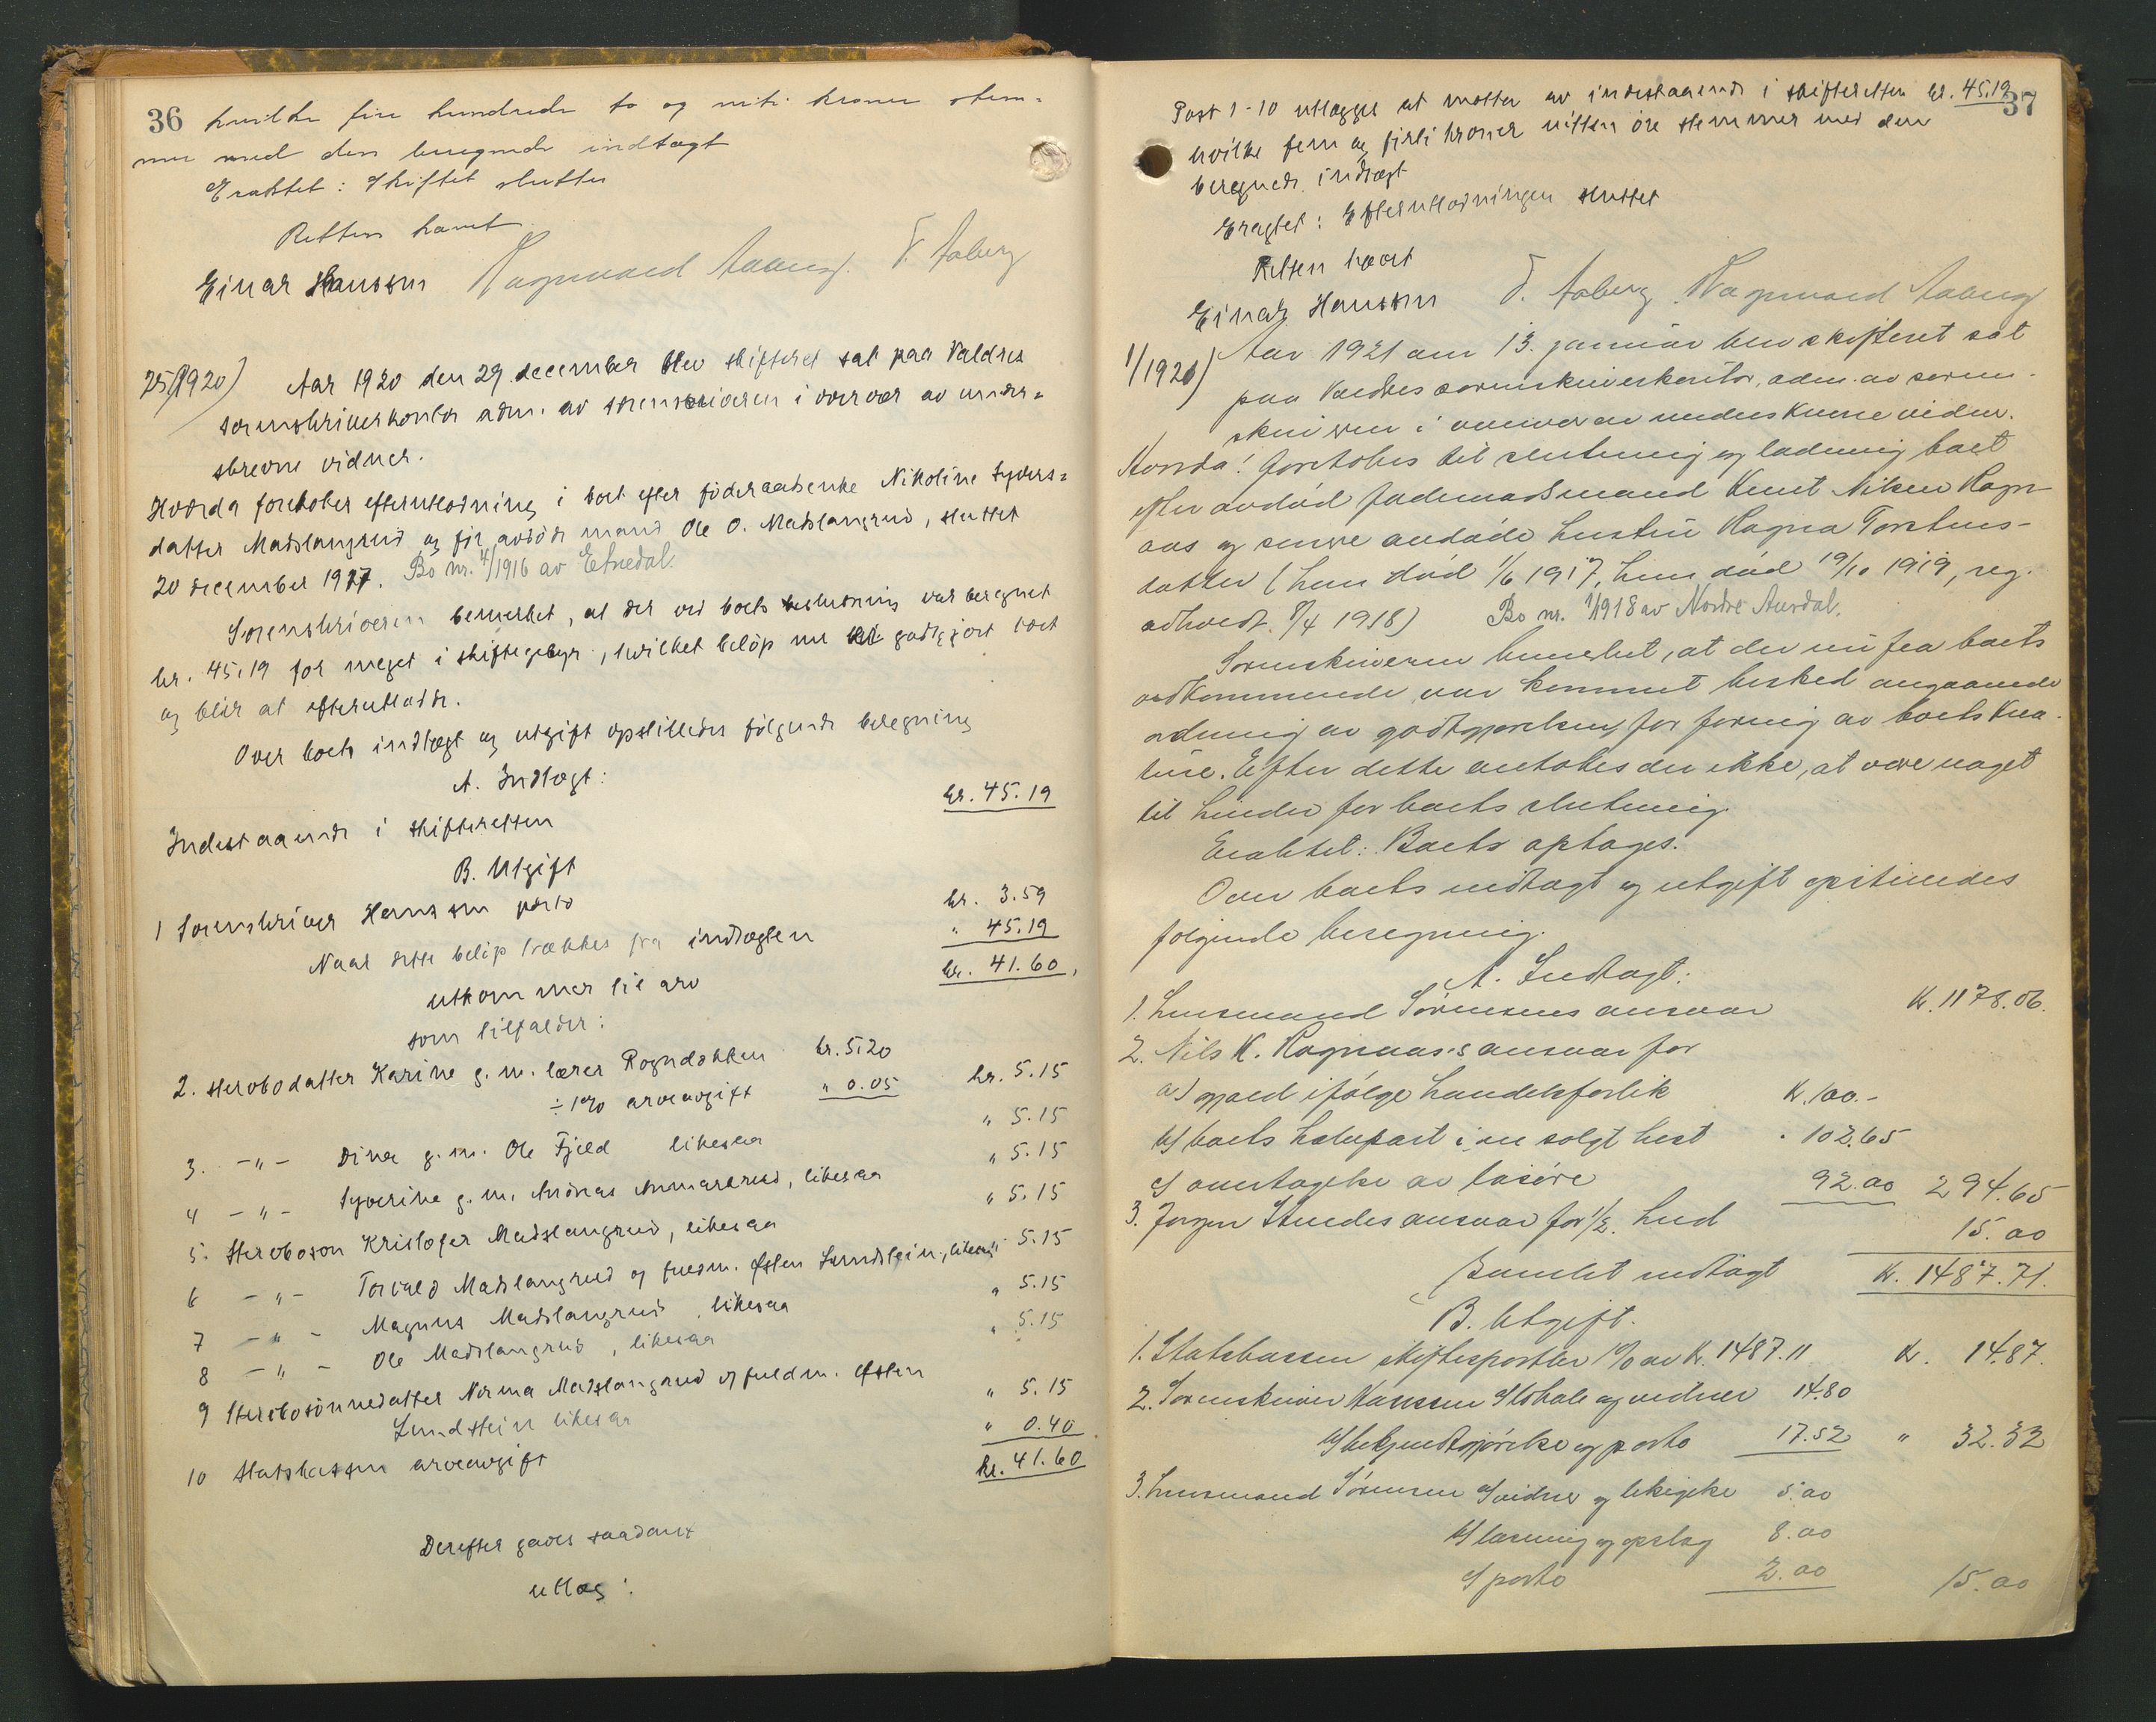 36 hvilke fire hundrede to og niti kroner stem-
mer med den beregnede indtægt
Eraktet: Skiftet sluttes
Retten hævet
Einar Hanssen Ragnvald Aaberg. T. Aaberg
25/1920) Aar 1920 den 29 december blev skifteret sat paa Valdres
sorenskriverkontor adm. av sorenskriveren i overvær av under-
skrevne vidner.
Hvorda foretokes efterutlodning i boet efter føderaadsenke Nikoline Syvers-
datter Madslangrud og før avdøde mand Ole O. Madslangrud, sluttet
20 december 1917. Bo nr. 4/1916 av Etnedal.
Sorenskriveren bemerket, at der ved boets beslutning var beregnet
kr. 45.19 for meget i skiftegebyr, hvilket beløp nu godtgjort boet
og blir at efterutlodde.
Over boets indtægt og utgift opstilledes følgende beregning
A. Indtægt:
Indestaaende i skifteretten kr. 45.19
B. Utgift
1 Sorenskriver Hanssen porto kr. 3.59
Naar dette beløp trækkes fra indtægten " 45.19
utkommer til arv kr. 41.60,
som tilfalder:
2. Sterbodatter Karine g. m. lærer Rogndokken kr. 5.20
÷ 1% arveavgift " 0.05 kr. 5.15
3. -"- Dina g. m. Ole Fjeld likesaa " 5.15
4 -"- Syverine g. m. Andreas Ammarerud, likesaa " 5.15
5. Sterboson Kristofer Madslangrud, likesaa " 5.15
6 -"- Torvald Madslangrud og fuldm. Østen Lundstein, likesaa " 5.15
7 -"- Magnus Madslangrud likesaa " 5.15
8 -"- Ole Madslangrud, likesaa " 5.15
9 Sterbosønnedatter Norma Madslangrud og fuldm. Østen
Lundstein likesaa " 5.15
10 Statskassen arveavgift " 0.40
kr. 41.60
Derefter gaves saadant
utlæg:
Post 1-10 utlægges at motta av indestaaende i skifteretten kr. 45.19 37
hvilke fem og firti kroner nitten øre stemmer med den
beregnede indtægt
Eragtet: Efterutlodningen sluttet
Retten hævet
Einar Hanssen T. Aaberg Ragnvald Aaberg
1/1920) Aar 1921 den 13. januar blev skifteret sat
paa Valdres sorenskriverkontor, adm. av soren-
skriveren i overvær av underskrevne vidner.
Hvorda: Foretokes til slutning og lodning boet
efter avdød føderaadsmand Knut Nilsen Ragn-
aas og senere avdøde hustru Ragna Torstens-
datter (han død 1/6 1917, hun død 19/10 1919, reg.
adhvedt. 8/4 1918) Bo nr. 1/1918 av Nordre Aurdal.
Sorenskriveren bemerket, at der nu fra boets
vedkommende var kommet besked angaaende
ordning av godtgjørelsen for foring av boets krea-
ture. Efter dette antokes der ikke, at være noget
til hinder for boets slutning.
Eraktet: Boets optages.
Over boets indtægt og utgift opstilledes
følgende beregning.
A. Indtægt:
1. Lensmand Sørensens ansvar kr. 1178.06.
2. Nils K. Ragnaas's ansvar for
a) gjæld ifølge handelsforlik kr. 100.-
b) boets halvpart i en solgt hest " 102.65
c) overtagelse av løsøre 92.00 294.65
3. Jørgen Stuedes ansvar for 1/2 hud 15.00
Samlet indtægt kr. 1487.71.
B. Utgift.
1. Statskassen skiftesportler 1% av kr. 1487.11 kr. 14.87.
2. Sorenskriver Hanssen a) lokale og vidner 14.80
b) bekjendtgjørelse og porto 17.52 " 32.32
3. Lensmand Sørensen a) vidner og 5.00
b) læsning og opslag 8.00
c) porto 2.00 15.00